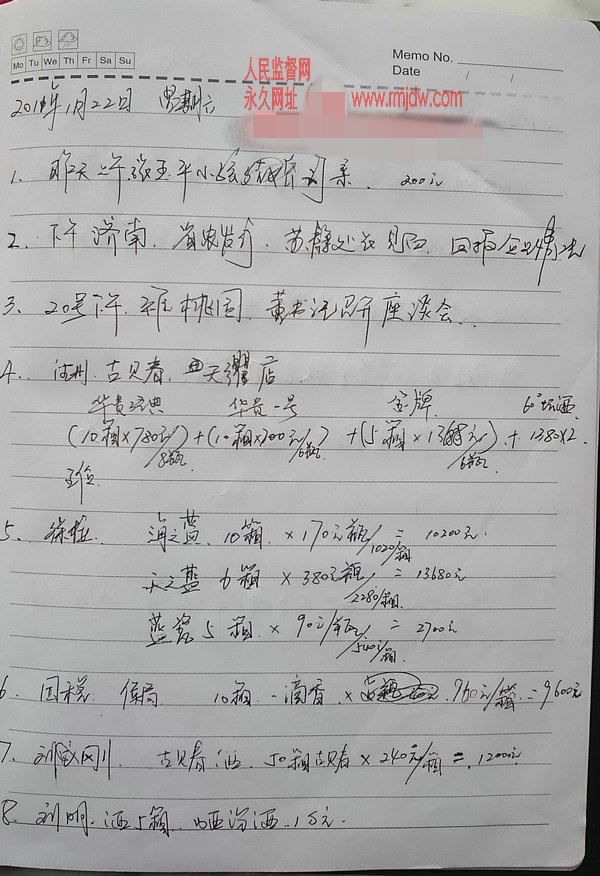 人民监督网
永久网址 www.rmjdw.com
Memo No.
Mo Tu We Th Fr Sa Su
Date / /
2011年1月22日 星期六
1. 昨天上午张玉平小孩 亲. 200元
2. 下午济南. 省农发行. 苏静处长见面. 回报企业情况
3. 20号下午. 桃园. 黄书记召开座谈会..
4. 古贝春. 天衢店
华贵经典 华贵一号 金牌 60°坛酒
(10箱×780元/8瓶)+(10箱×700元/6瓶) +(5箱× 元/6瓶) + 1380×2.
5. 海之蓝. 10箱. ×170元/瓶 = 10200元.
1020/箱
天之蓝 6箱 ×380元/瓶 = 13680元
2280/箱
蓝瓷 5箱. ×90元/瓶 = 2700元
540元/箱
6. 国税. 侯局. 10箱. 一滴香 × 960元/箱 = 9600元
7. 刘成刚. 古贝春酒. 50箱古贝春×240元/箱 = 12000元
8. 刘明. 酒5箱. 汾酒. 1万元.